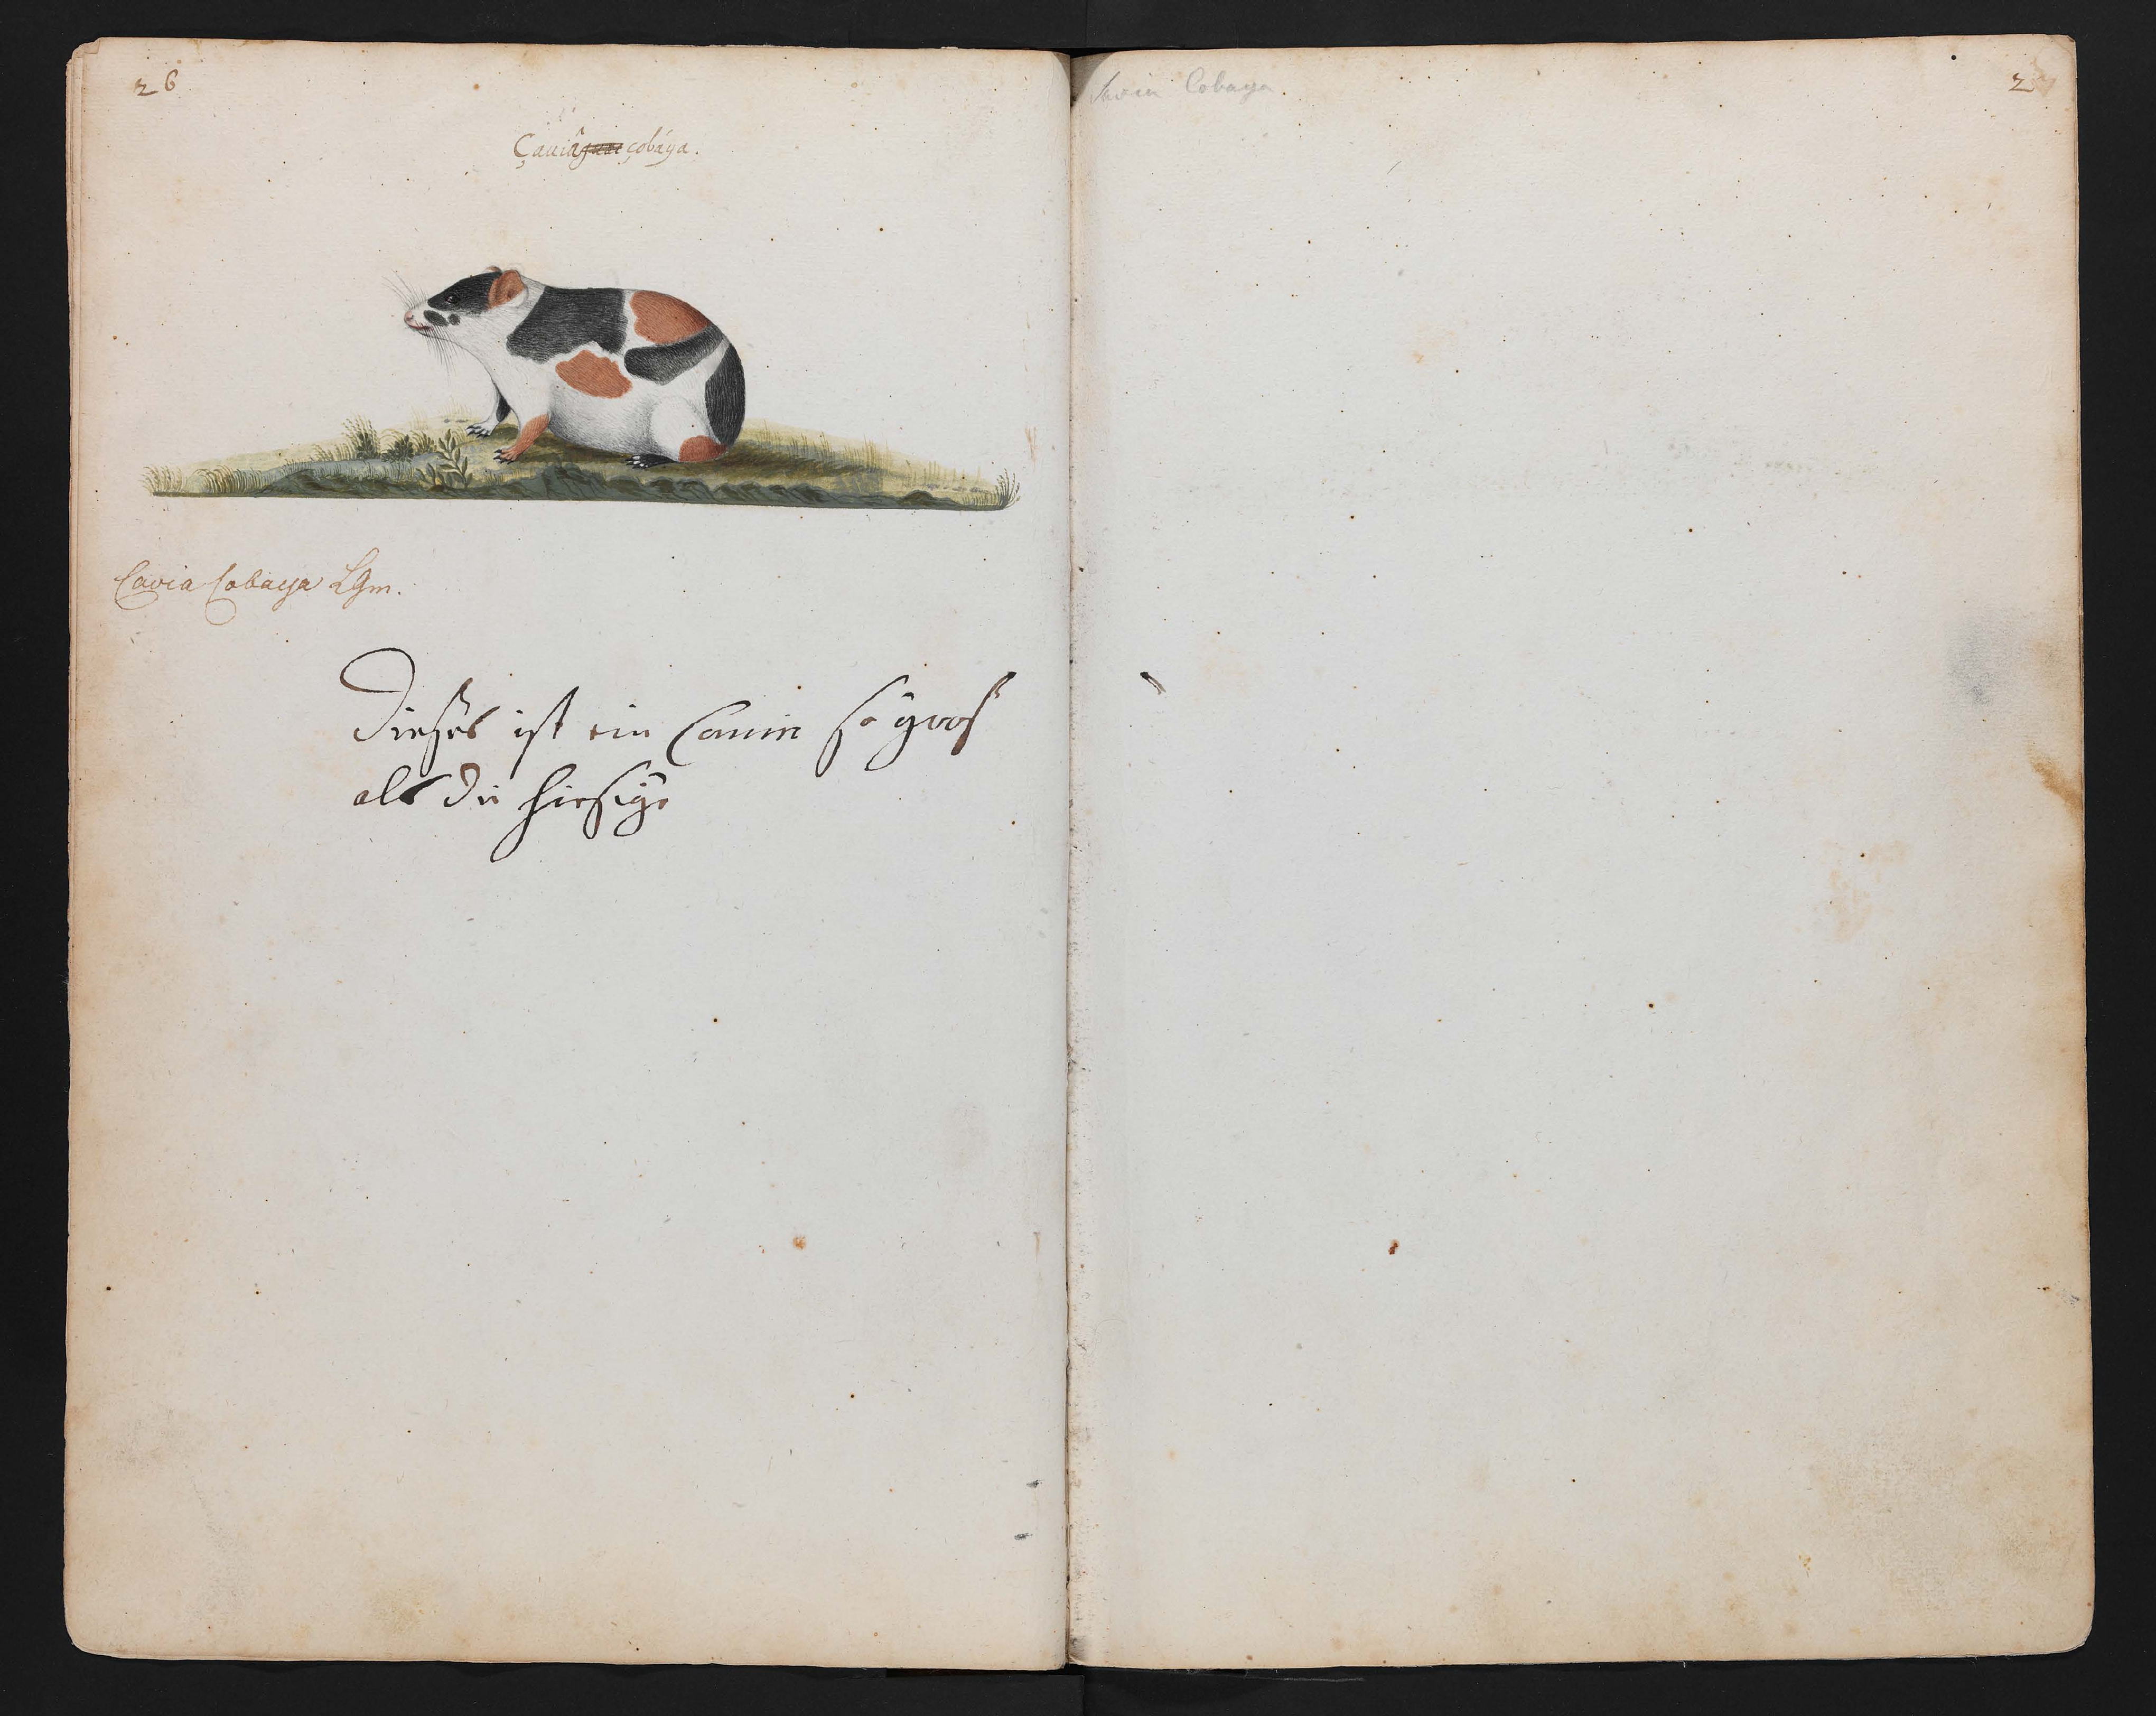 26
Çauiâ çobáya.
Cavia Cobaya LGm.
Dießes ist ein Cauin so groß
alß die hiesige
Cavia Cobaya.
27